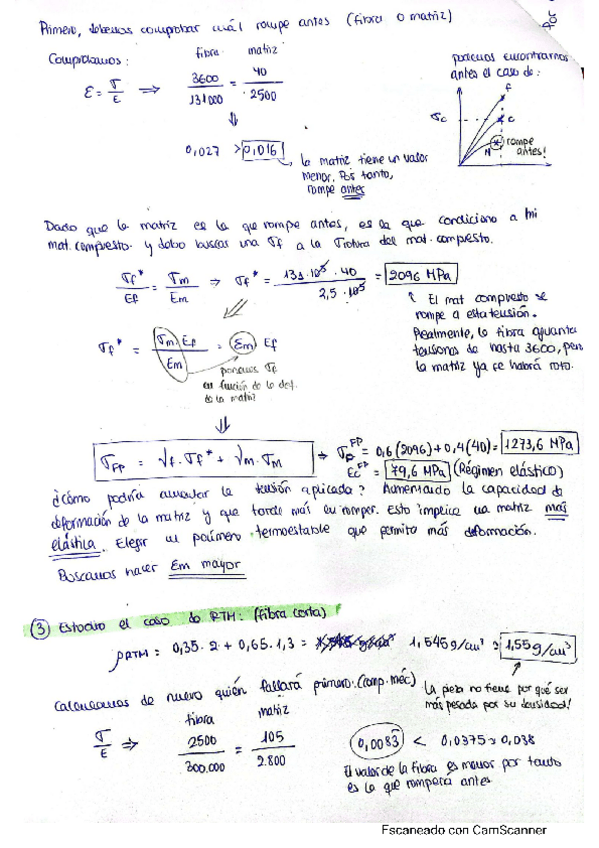 Primero, debemos comprobar cuál rompe antes (fibra o matriz)
Comprobamos: fibra matriz
ε = σ/E ⇒ 3600/131000 = 40/2500
0,027 > 0,016
la matriz tiene un valor
menor. Por tanto,
rompe antes
podemos encontrarnos
antes el caso de:
σc
F
C
M
rompe
antes!
Dado que la matriz es la que rompe antes, es la que condiciona a mi
mat. compuesto y debo buscar una σf a la rotura del mat. compuesto.
σf*/Ef = σm/Em ⇒ σf* = 131·10³ · 40 / 2,5 · 10³ = 2096 MPa
El mat compuesto se
rompe a esta tensión.
Realmente, la fibra aguanta
tensiones de hasta 3600, pero
la matriz ya se habrá roto.
σf* = σm · Ef / Em = εm · Ef
ponemos σf
en función de la def.
de la matriz
σFP = Vf · σf* + Vm · σm ⇒ σ FP = 0,6 (2096) + 0,4 (40) = 1273,6 MPa
Ec FP = 79,6 MPa (Régimen elástico)
¿Cómo podría aumentar la tensión aplicada? Aumentando la capacidad de
deformación de la matriz y que tarde más en romper. Esto implica una matriz más
elástica. Elegir un polímero termoestable que permita más deformación.
Buscamos hacer εm mayor
③ Estudio el caso de RTM: (fibra corta)
ρRTM = 0,35 · 2 + 0,65 · 1,3 = 1,545 g/cm³ ≈ 1,55 g/cm³
La pieza no tiene por qué ser
más pesada por su densidad!
Calculamos de nuevo quién fallará primero. (comp. méc)
fibra matriz
σ/E ⇒ 2500/300.000 = 105/2.800
0,0083 < 0,0375 ≈ 0,038
El valor de la fibra es menor por tanto
es la que romperá antes
Escaneado con CamScanner